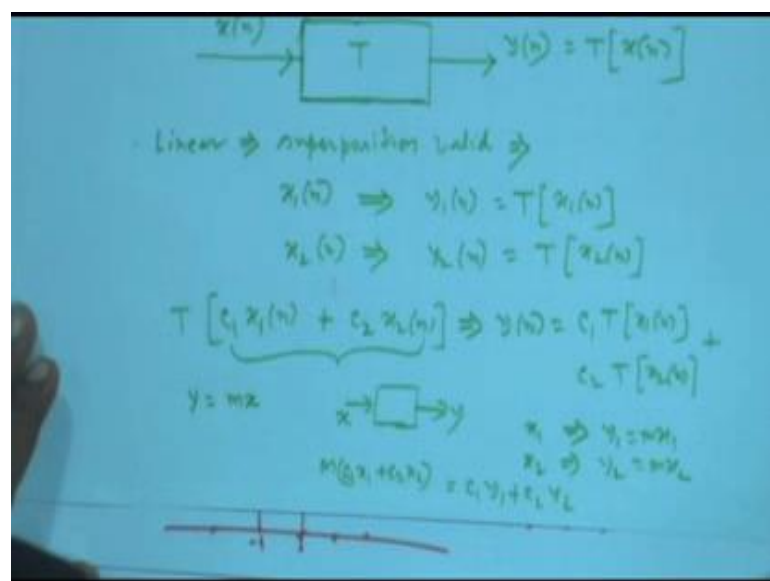 x(n)
T
y(n) = T[x(n)]
Linear ⇒ superposition valid ⇒
x₁(n) ⇒ y₁(n) = T[x₁(n)]
x₂(n) ⇒ y₂(n) = T[x₂(n)]
T [c₁ x₁(n) + c₂ x₂(n)] ⇒ y(n) = c₁ T[x₁(n)] +
c₂ T[x₂(n)]
y = mx
x → □ → y
x₁ ⇒ y₁ = mx₁
x₂ ⇒ y₂ = mx₂
m(c₁x₁ + c₂x₂) = c₁y₁ + c₂y₂